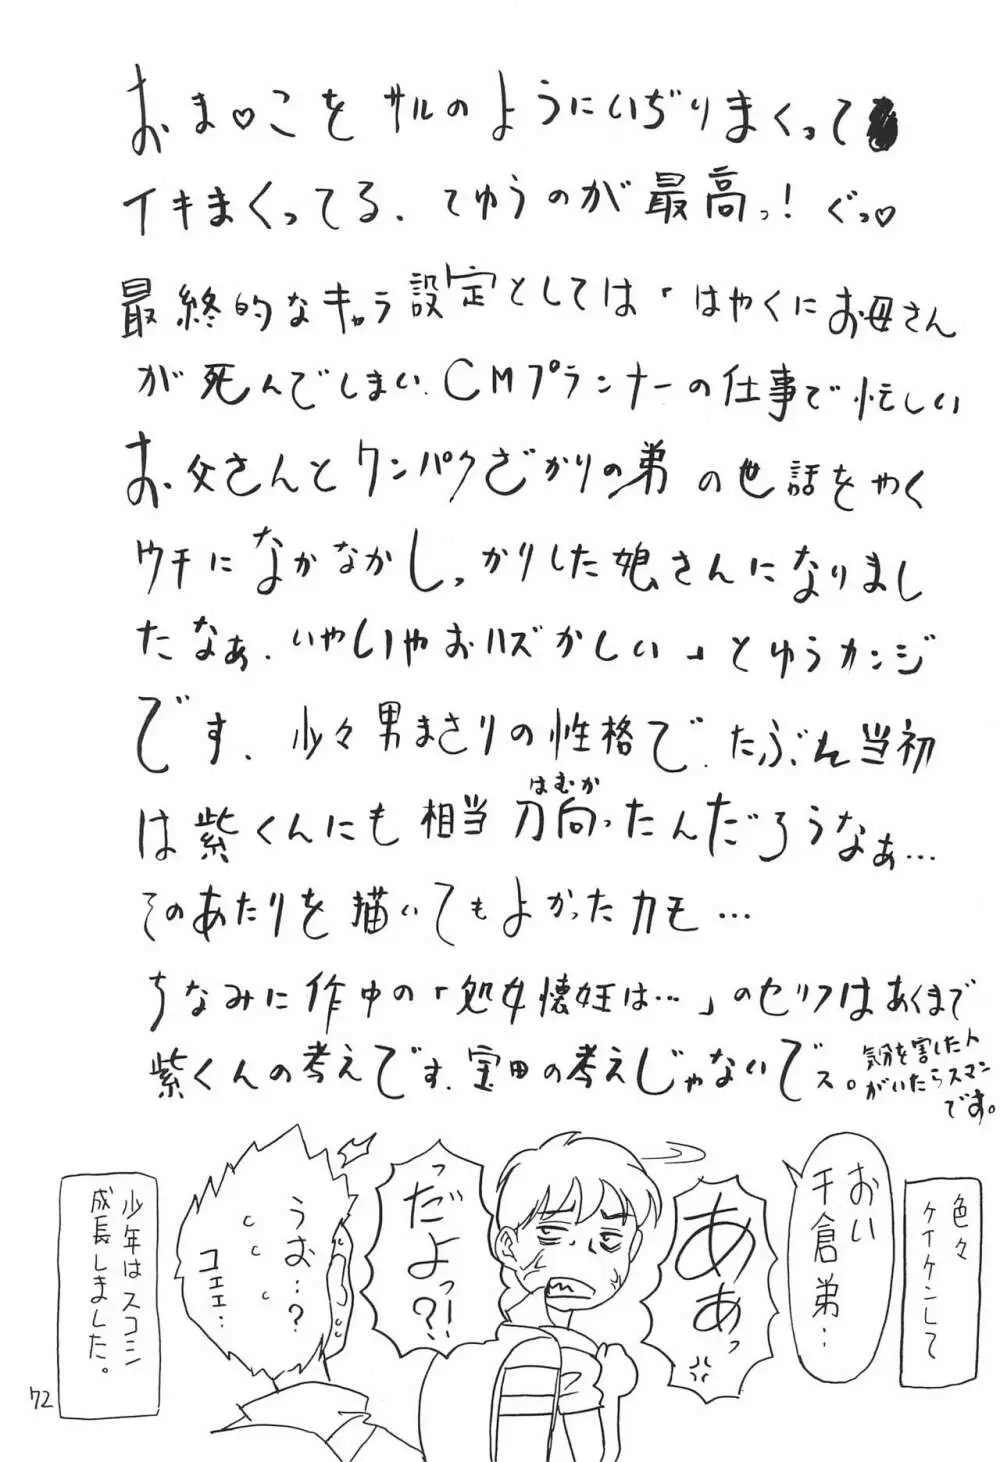 おま♡こを サルのようにいぢりまくって
イキまくってる、てゆうのが最高っ！ぐっ♡
最終的なキャラ設定としては「はやくにお母さん
が死んでしまい、CMプランナーの仕事で忙しい
お父さんとワンパクざかりの弟の世話をやく
ウチになかなかしっかりした娘さんになりまし
たなぁ、いやしいやおハズかしい」とゆうカンジ
です、少々男まさりの性格で、たぶん当初
は紫くんにも相当刀向ったんだろうなぁ…
はむか
そのあたりを描いてもよかったカモ…
ちなみに作中の「処女懐妊は…」のセリフはあくまで
紫くんの考えです、宝田の考えじゃないでス。
気分を害した人
がいたらスマン
です。
色々
ケイケンして
おい
千倉弟…
あぁっ
っだよっ!?
うお…?
コエェ…
少年はスコシ
成長しました。
72